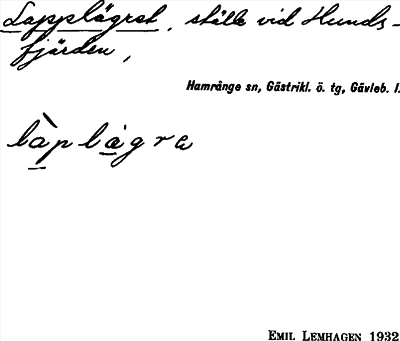 Lapplägret, ställe vid Hunds-
fjärden,
Hamrånge sn, Gästrikl. ö. tg, Gävleb. l.
làplágrα
EMIL LEMHAGEN 1932